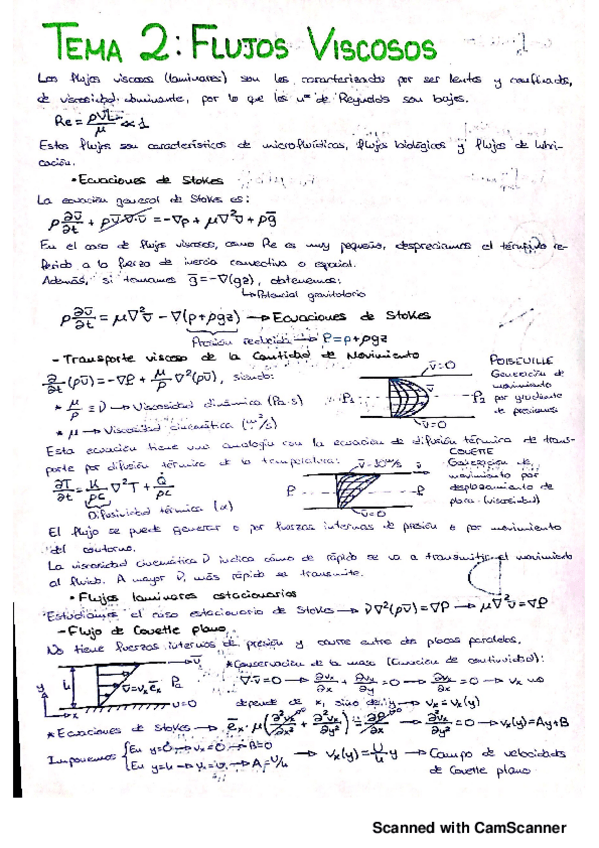 TEMA 2: FLUJOS VISCOSOS
Los flujos viscosos (laminares) son los caracterizados por ser lentos y confinados,
de viscosidad dominante, por lo que los nos de Reynolds son bajos.
Re = ρVL/μ ≪ 1
Estos flujos son característicos de microfluídicas, flujos biológicos y flujos de lubri-
cación.
• Ecuaciones de Stokes
La ecuación general de Stokes es:
ρ ∂v̄/∂t + ρv̄·∇v̄ = -∇p + μ∇²v̄ + ρḡ
En el caso de flujos viscosos, como Re es muy pequeño, despreciamos el término re-
ferido a la fuerza de inercia convectiva o espacial.
Además, si tomamos ḡ = -∇(gz), obtenemos:
↳ Potencial gravitatorio
ρ ∂v̄/∂t = μ∇²v̄ - ∇(p+ρgz) → Ecuaciones de Stokes
Presión reducida → P = p + ρgz
- Transporte viscoso de la Cantidad de Movimiento
∂/∂t (ρv̄) = -∇P + μ/ρ ∇²(ρv̄), siendo:
* μ/ρ ≡ ν → Viscosidad dinámica (Pa·s)
* μ → Viscosidad cinemática (m²/s)
v̄=0
P₁
v̄
P₂
v̄=0
POISEUILLE
Generación de
movimiento
por gradiente
de presiones
Esta ecuación tiene una analogía con la ecuación de difusión térmica de trans-
porte por difusión térmica de la temperatura:
∂T/∂t = K/ρc ∇²T + Q̇/ρc
Difusividad térmica (α)
P
P
v̄=0
COUETTE
Generación de
movimiento por
desplazamiento de
placa (viscosidad)
El flujo se puede generar o por fuerzas internas de presión o por movimiento
del contorno.
La viscosidad cinemática ν indica cómo de rápido se va a transmitir el movimiento
al fluido. A mayor ν, más rápido se transmite.
• Flujos laminares estacionarios
Estudiamos el caso estacionario de Stokes → ν∇²(ρv̄) = ∇P → μ∇²v̄ = ∇P
- Flujo de Couette plano
No tiene fuerzas internas de presión y ocurre entre dos placas paralelas.
y
x
h
v̄=vₓēₓ
Pa
U=0
* Conservación de la masa (Ecuación de continuidad):
∇·v̄=0 → ∂vₓ/∂x + ∂vᵧ/∂y = 0 → ∂vₓ/∂x = 0 → vₓ no
depende de x, sino de y → vₓ = vₓ(y)
* Ecuaciones de Stokes → ēₓ · μ(∂²vₓ/∂x² + ∂²vₓ/∂y²) = ∂P/∂x → ∂²vₓ/∂y² = 0 → vₓ(y) = Ay+B
Imponemos { En y=0 → vₓ=0 → B=0
En y=h → vₓ=U → A=U/h
→ vₓ(y) = U/h y → Campo de velocidades
de Couette plano
Scanned with CamScanner